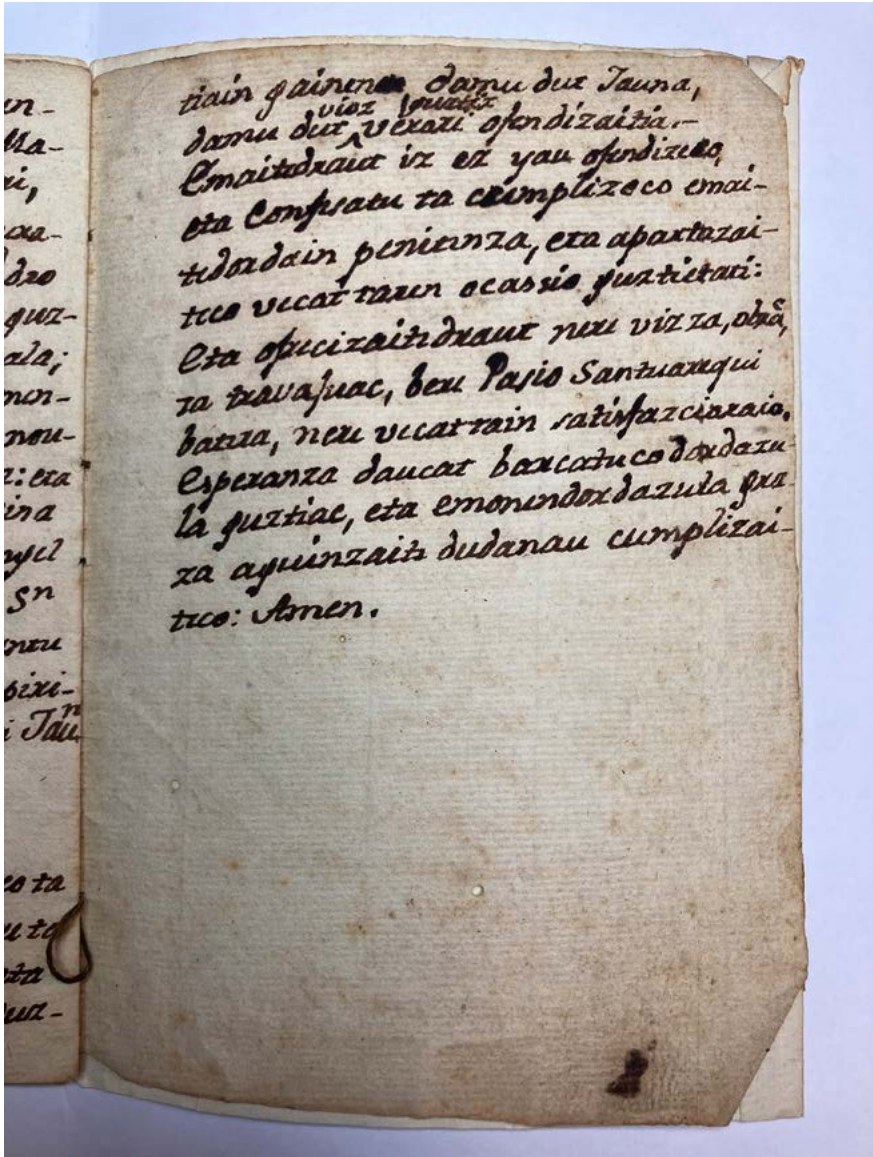 Ma-
ri,
dro
guz-
ala;
men-
mou-
z: eta
ina
Sn
ntu
piri-
i Jaun
co ta
u ta
ata
guz-
tiain gainenean damu dut Jauna,
damu dut vioz guztiz verari ofendizaitia.-
Emaitedraut iz ez yau ofendizeco,
eta Confesatu ta cumplizeco emai-
tedordain penitenza, eta apartazai-
teco vecattaren ocassio guztietati:
Eta ofrecizaitedraut nere vizza, obra,
ta travajuac, bere Pasio Santuarequi
batera, nere vecattain satisfazcioraco.
Esperanza daucat barcatuco dordazu-
la guztiac, eta emonendordazula gra-
za aguinzaite dudanau cumplizai-
teco: Amen.